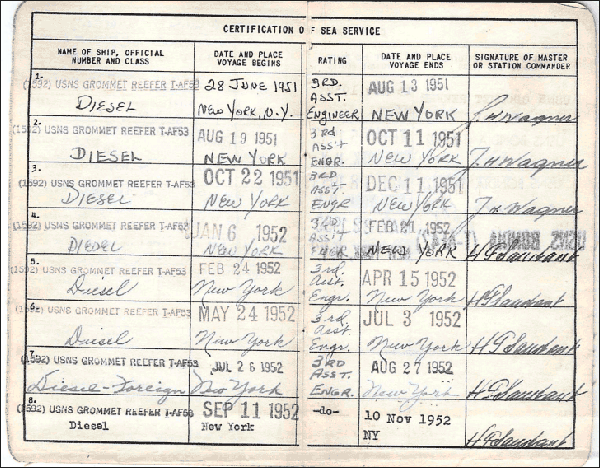 CERTIFICATION OF SEA SERVICE
NAME OF SHIP, OFFICIAL NUMBER AND CLASS
DATE AND PLACE VOYAGE BEGINS
RATING
DATE AND PLACE VOYAGE ENDS
SIGNATURE OF MASTER OR STATION COMMANDER
1.
(1592) USNS GROMMET REEFER T-AF53 28 JUNE 1951 3RD. AUG 13 1951
DIESEL NEW YORK, N.Y. ASST. ENGINEER NEW YORK J H Wagner
2.
(1592) USNS GROMMET REEFER T-AF53 AUG 19 1951 3rd OCT 11 1951
DIESEL NEW YORK ASS't ENGR. NEW YORK J H Wagner
3.
(1592) USNS GROMMET REEFER T-AF53 OCT 22 1951 3rd DEC 11 1951
DIESEL NEW YORK ASS't ENGR NEW YORK J H Wagner
4.
(1592) USNS GROMMET REEFER T-AF53 JAN 6 1952 3RD 1952
DIESEL NEW YORK ASS'T NEW YORK
5.
(1592) USNS GROMMET REEFER T-AF53 FEB 24 1952 3rd. APR 15 1952
Diesel New York Asst. Engr. New York
6.
(1592) USNS GROMMET REEFER T-AF53 MAY 24 1952 3rd JUL 3 1952
Diesel New York Asst Engr. New York
7.
(1592) USNS GROMMET REEFER T-AF53 JUL 26 1952 3RD AUG 27 1952
Diesel-Foreign New York ASST. ENGR. New York
8.
(1592) USNS GROMMET REEFER T-AF53 SEP 11 1952 -do- 10 Nov 1952
Diesel New York NY